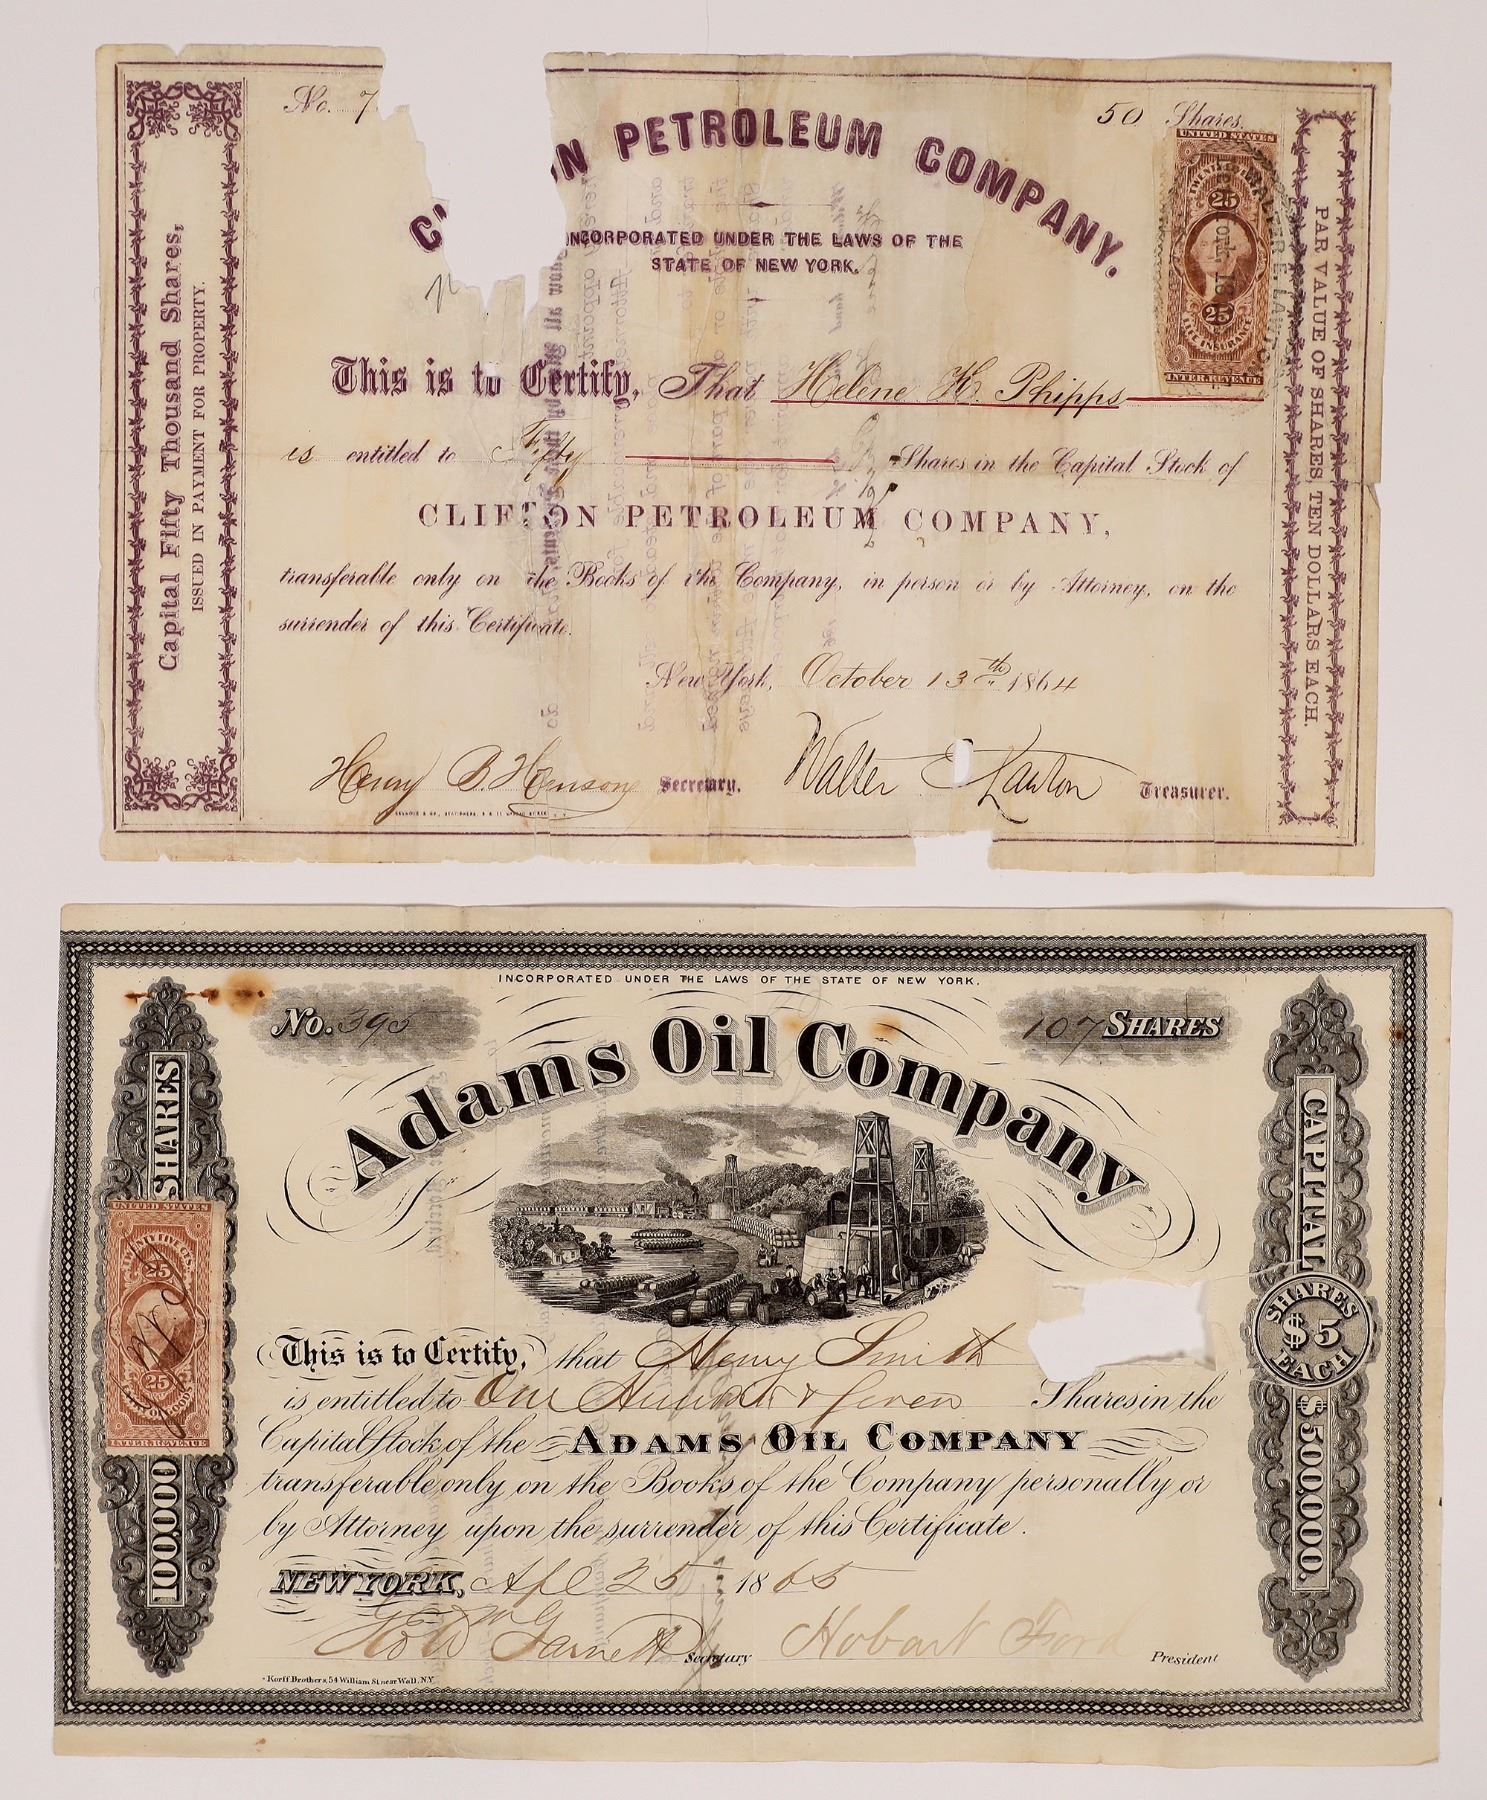 No. 7
50 Shares.
PETROLEUM COMPANY.
INCORPORATED UNDER THE LAWS OF THE
STATE OF NEW YORK.
This is to Certify, That Helene K. Phipps
is entitled to Fifty Shares in the Capital Stock of
CLIFTON PETROLEUM COMPANY,
transferable only on the Books of the Company, in person or by Attorney, on the
surrender of this Certificate.
New York, October 13th 1864
Henry B. Secretary. Walter E Lawton Treasurer.
Capital Fifty Thousand Shares,
ISSUED IN PAYMENT FOR PROPERTY.
PAR VALUE OF SHARES, TEN DOLLARS EACH.
UNITED STATES
25
25
LIFE INSURANCE
INTER. REVENUE
INCORPORATED UNDER THE LAWS OF THE STATE OF NEW YORK.
No. 395
107 SHARES
Adams Oil Company
This is to Certify, that Henry Smith
is entitled to One Hundred & Seven Shares in the
Capital Stock of the ADAMS OIL COMPANY
transferable only on the Books of the Company personally or
by Attorney upon the surrender of this Certificate.
NEW YORK, Apl 25 1865
Garnett Secretary Hobart Ford President
Korff Brothers, 54 William St. near Wall, N.Y.
SHARES
100,000
UNITED STATES
25
25
INTER. REVENUE
CAPITAL
SHARES
$5
EACH
$500,000.